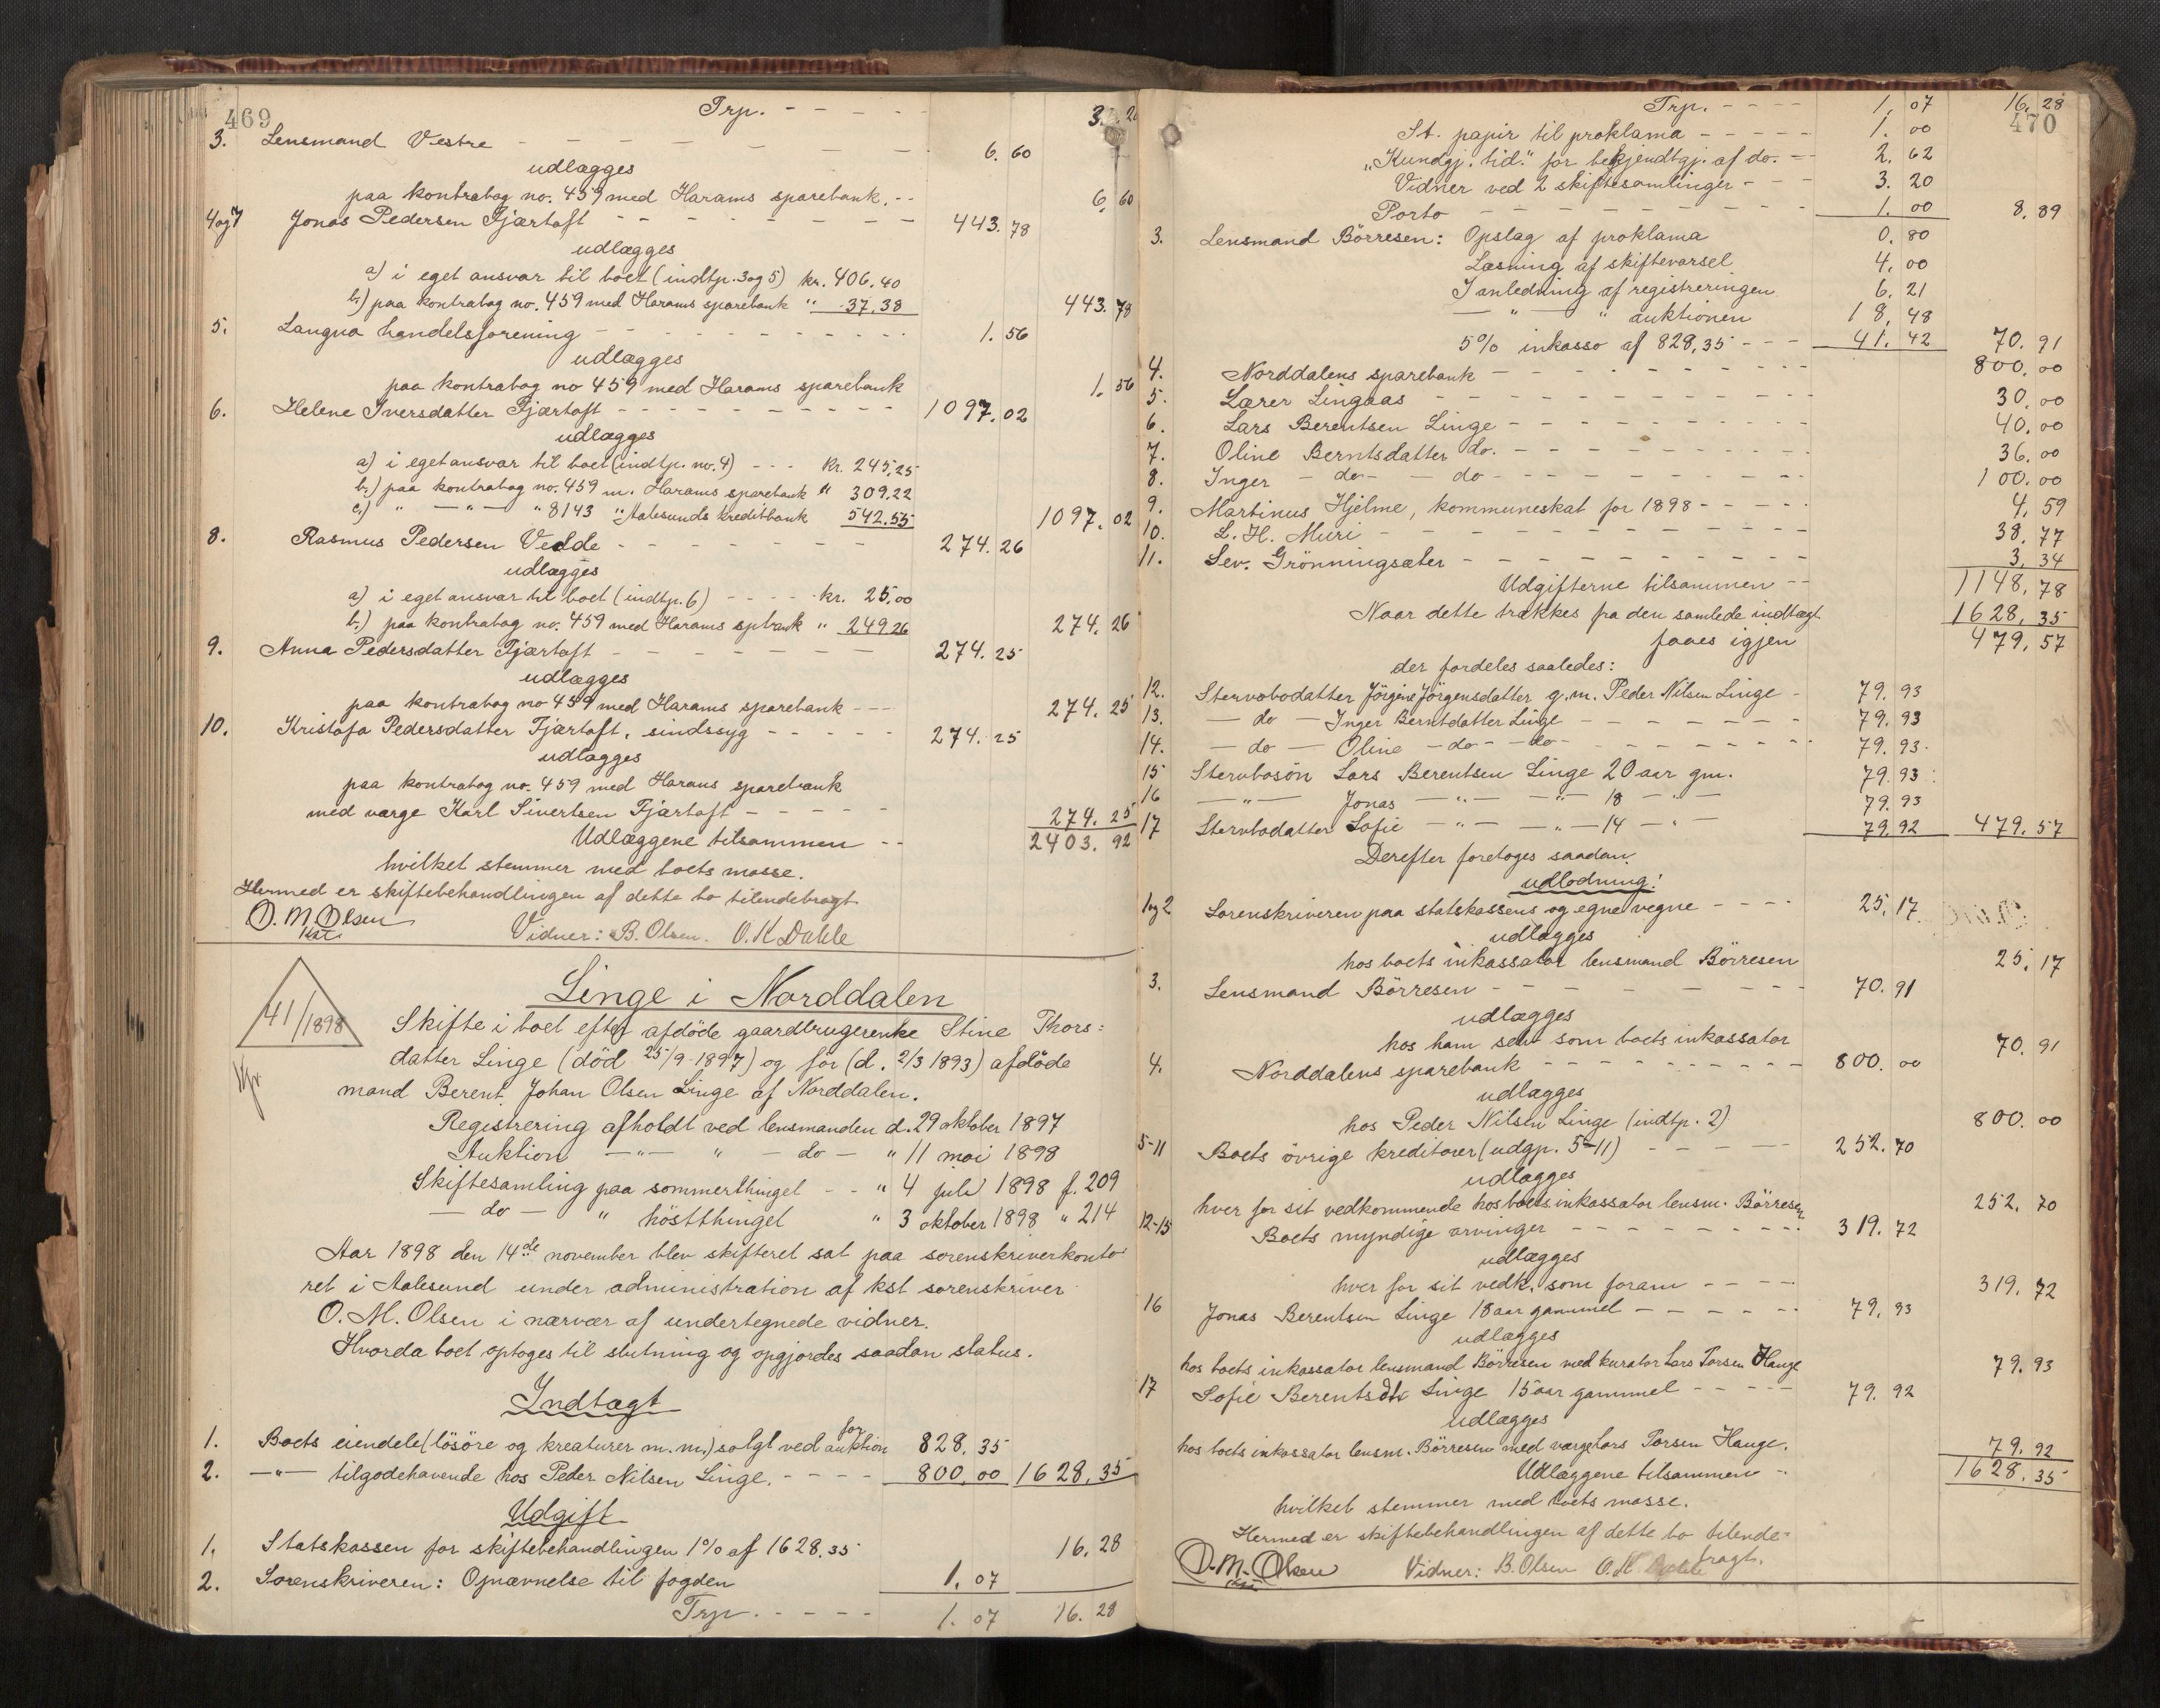 469
Trp. - - - - 3. 2
3. Lensmand Vestre - - - - - - - 6. 60
udlægges
paa kontrabog no. 459 med Harams sparebank. - - 6. 60
4og7 Jonas Pedersen Fjærtoft - - - - - - - - 443. 78
udlægges
a) i eget ansvar til boet (indtp. 3og5) kr. 406.40
b.) paa kontrabog no. 459 med Harams sparebank " 37.38 443. 78
5. Langva handelsforening - - - - - - - - - 1. 56
udlægges
paa kontrabog no 459 med Harams sparebank 1. 56
6. Helene Iversdatter Fjærtoft - - - - - - - - - 1097. 02
udlægges
a) i eget ansvar til boet (indtp. no. 4) - - - kr. 245,25
b.) paa kontrabog no. 459 m. Harams sparebank " 309.22
c.) " — " — " 8143 " Aalesunds kreditbank 542.55 1097. 02
8. Rasmus Pedersen Vedde - - - - - - - 274. 26
udlægges
a) i eget ansvar til boet (indtp. 6) - - - - kr. 25,00
b.) paa kontrabog no. 459 med Harams spbank " 249.26 274. 26
9. Anna Pedersdatter Fjærtoft - - - - - - - 274. 25
udlægges
paa kontrabog no 459 med Harams sparebank - - - 274. 25
10. Kristofa Pedersdatter Fjærtoft, sindssyg - - - - - 274. 25
udlægges
paa kontrabog no. 459 med Harams sparebank
med værge Karl Sivertsen Fjærtoft - - - - - 274. 25
Udlæggene tilsammen - - 2403. 92
hvilket stemmer med boets masse.
Hermed er skiftebehandlingen af dette bo tilendebragt
O. M. Olsen
kst.
Vidner: B. Olsen. O. K Dahle
Linge i Norddalen
41/1898
Skifte i boet efter afdöde gaardbrugerenke Stine Thors:
datter Linge (död 25/9 1897) og för (d. 2/3 1893) afdöde
mand Berent Johan Olsen Linge af Norddalen.
Registrering afholdt ved lensmanden d. 29 oktober 1897
Auktion — " — " — do — " 11 mai 1898
Skiftesamling paa sommerthinget - - " 4 juli 1898 f. 209
— do — " höstthinget " 3 oktober 1898 " 214
Aar 1898 den 14de november blev skifteret sat paa sorenskriverkonto
ret i Aalesund under administration af kst sorenskriver
O. M. Olsen i nærvær af undertegnede vidner.
Hvorda boet optoges til slutning og opgjordes saadan status.
Indtægt
1. Boets eiendele (lösöre og kreaturer m. m.) solgt ved for auktion 828. 35
2. — " — tilgodehavende hos Peder Nilsen Linge. - - - - 800, 00 1628, 35
Udgift
1. Statskassen for skiftebehandlingen 1% af 1628.35 16. 28
2. Sorenskriveren: Opnævnelse til fogden 1. 07
Trp. - - - - - 1. 07 16. 28
470
Trp. - - - - 1. 07 16. 28
St. papir til proklama - - - - - 1. 00
"Kundgj. tid." for bekjendtgj. af do. - - 2. 62
Vidner ved 2 skiftesamlinger - - - 3. 20
Porto - - - - - - - - - 1. 00 8. 89
3. Lensmand Börresen: Opslag af proklama 0. 80
Læsning af skiftevarsel 4. 00
I anledning af registreringen 6. 21
— " — " auktionen 18. 48
5% inkasso af 828,35 - - - 41. 42 70. 91
4. Norddalens sparebank - - - - - - - - - 800. 00
5. Lærer Lingaas - - - - - - - - - - - 30. 00
6. Lars Berentsen Linge - - - - - - - - - 40. 00
7. Oline Berntsdatter do. - - - - - - - - - 36. 00
8. Inger - do - - do - - - - - - - - - 100. 00
9. Martinus Hjelme, kommuneskat for 1898 - - - - - 4, 59
10. L. H. Muri - - - - - - - - - - - - 38. 77
11. Sev. Grönningsæter - - - - - - - - - - 3, 34
Udgifterne tilsammen - - 1148, 78
Naar dette trækkes fra den samlede indtægt 1628, 35
faaes igjen 479, 57
der fordeles saaledes:
12. Stervbodatter Jörgine Jörgensdatter g. m. Peder Nilsen Linge - 79. 93
13. — do — Inger Berntdatter Linge - - - - - - - 79. 93
14. — do — Oline - do - - do - - - - - - - - 79. 93.
15 Stervbosön Lars Berentsen Linge 20 aar gm. 79. 93
16 — " — Jonas — " — — " — 18 — " — 79. 93
17 Stervbodatter Sofie — " — — " — 14 — " — 79. 92 479. 57
Derefter foretoges saadan
udlodning:
1og2 Sorenskriveren paa statskassens og egne vegne - - - - 25. 17
udlægges
hos boets inkassator lensmand Börresen 25. 17
3. Lensmand Börresen - - - - - - - - - 70. 91
udlægges
hos ham selv som boets inkassator 70. 91
4. Norddalens sparebank - - - - - - - - - 800. 00
udlægges
hos Peder Nilsen Linge (indtp. 2) 800. 00
5-11 Boets övrige kreditorer (udgp. 5-11) - - - - - 252. 70
udlægges
hver for sit vedkommende hos boets inkassator lensm. Börresen 252. 70
12-15 Boets myndige arvinger - - - - - - - - - 319. 72
udlægges
hver for sit vedk. som foran - - - - 319. 72
16 Jonas Berentsen Linge 18 aar gammel - - - - - - 79. 93
udlægges
hos boets inkassator lensmand Börresen med kurator Lars Torsen Hauge 79. 93
17 Sofie Berentsdtr Linge 15 aar gammel - - - - - 79. 92
udlægges
hos boets inkassator lensm. Börresen med værge Lars Torsen Hauge. 79. 92
Udlæggene tilsammen - . 1628. 35
hvilket stemmer med boets masse.
Hermed er skiftebehandlingen af dette bo tilende-
bragt.
O. M. Olsen
kst.
Vidner: B. Olsen O. K. Dahle